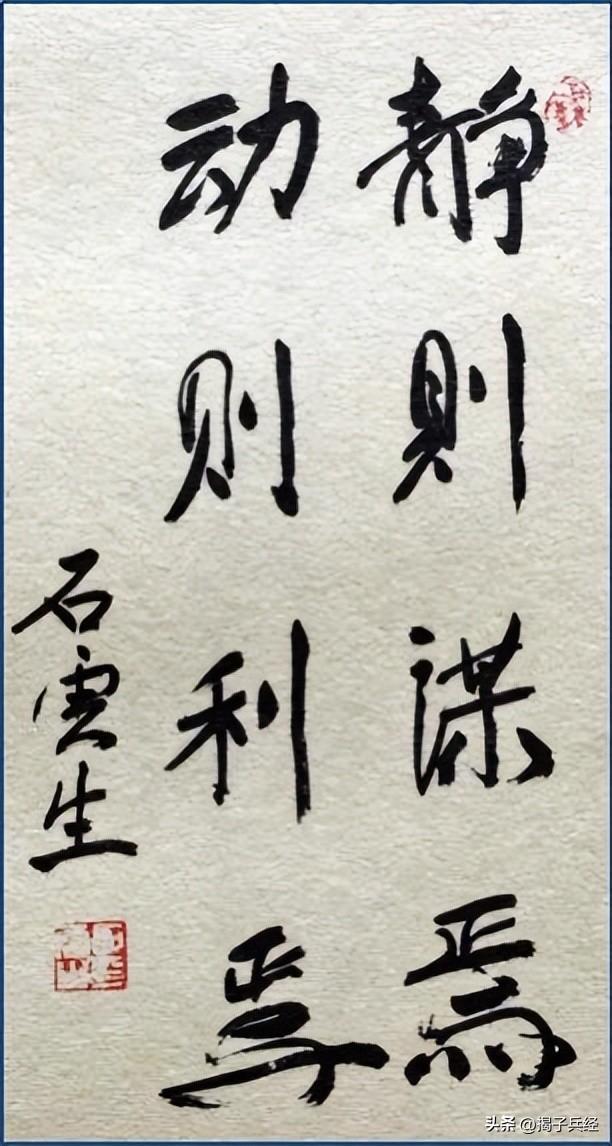 静則谋焉
动则利焉
石雲生
头条 @揭子兵经